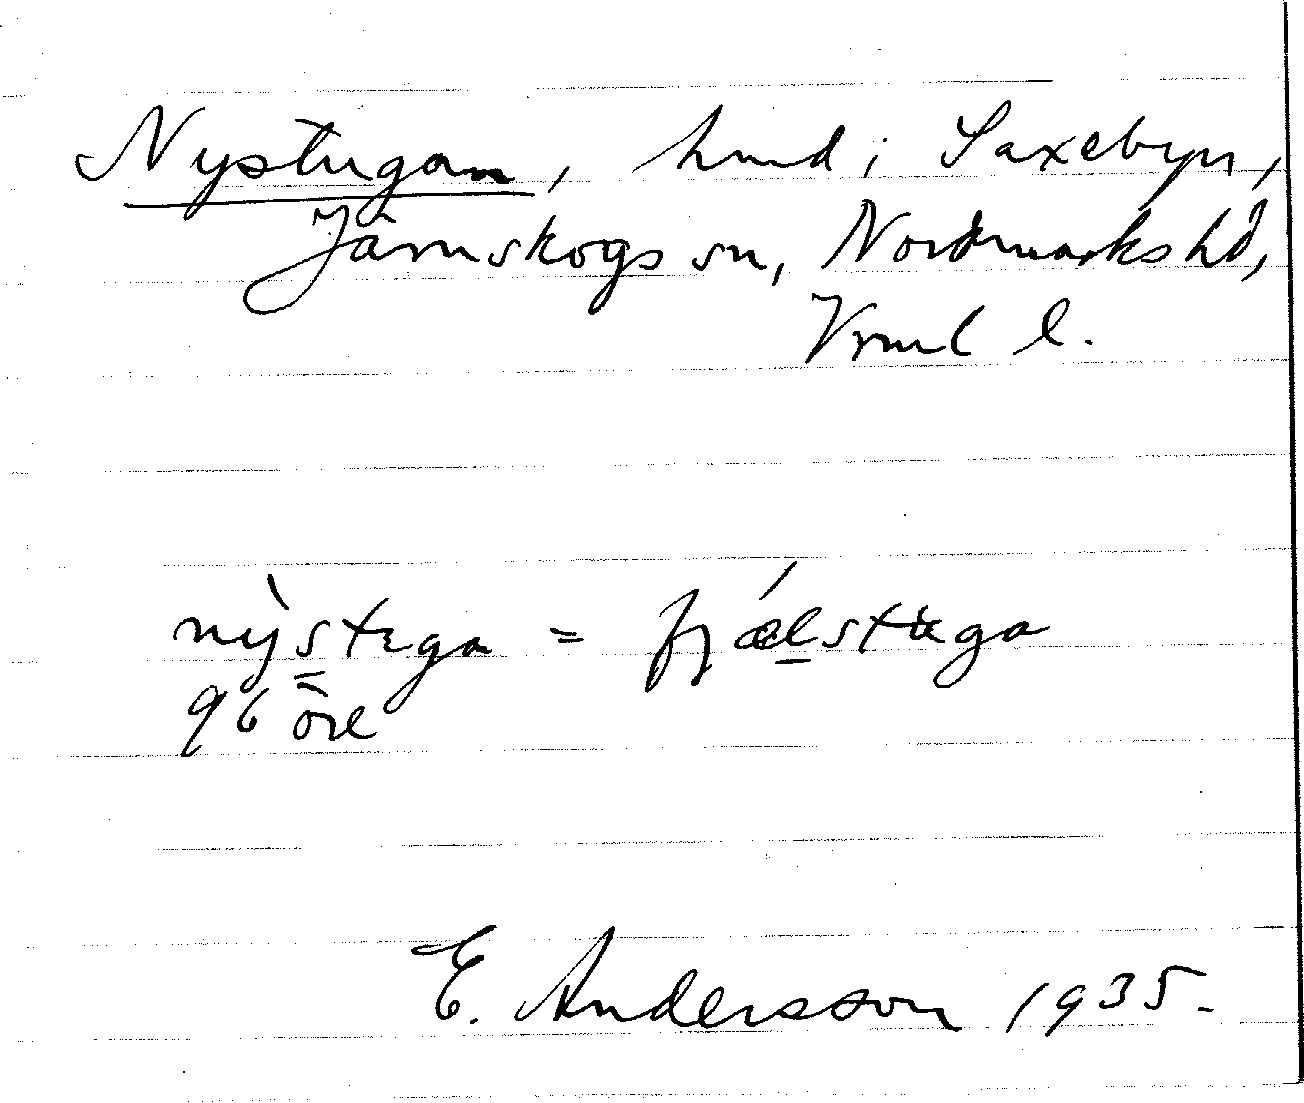 Nystugan, hmd i Saxebyn,
Järnskogs sn, Nordmarks hd,
Vrml l.
nỳstega = fjǽlstuga
96 öre
E. Andersson 1935.